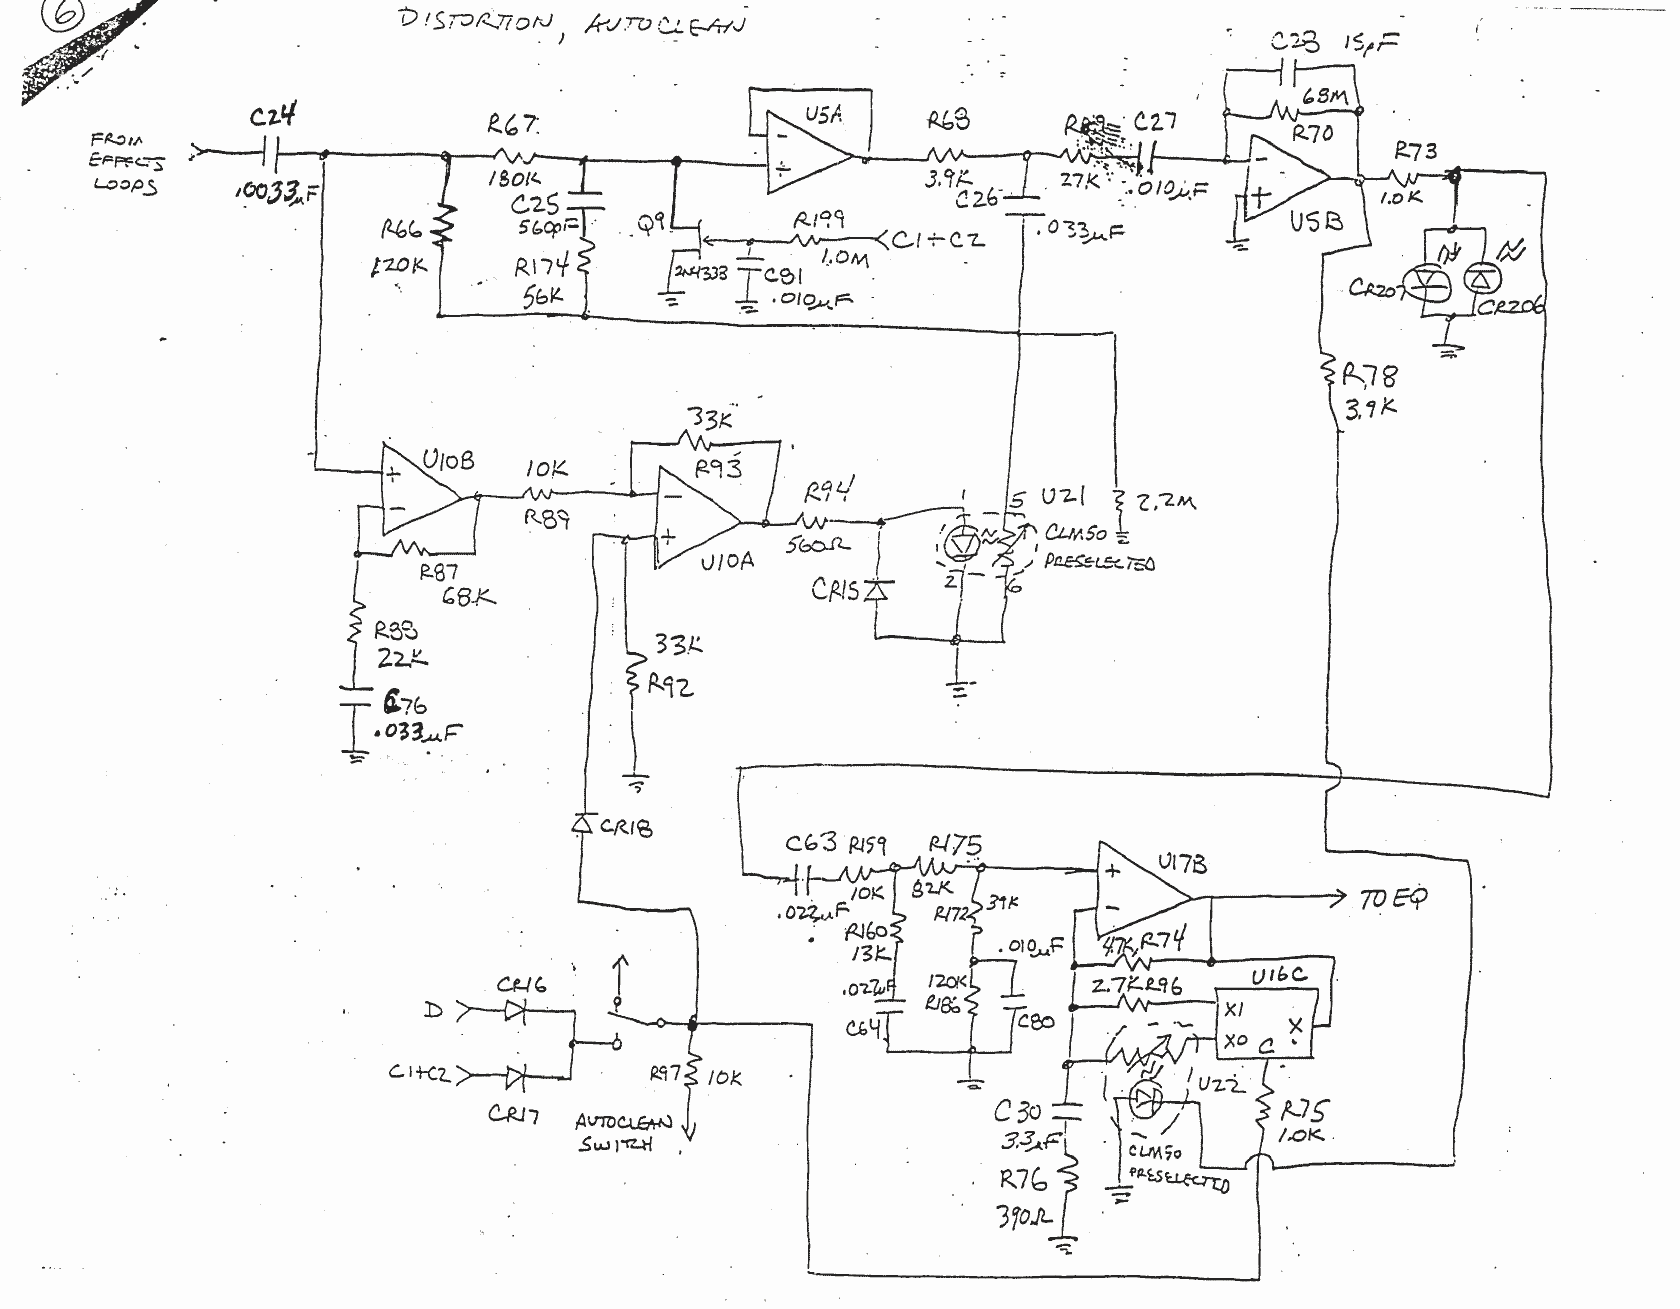 6
DISTORTION, AUTOCLEAN
FROM
EFFECTS
LOOPS
C24
.0033µF
R67
180K
C25
560pF
R174
56K
R66
120K
Q9
2N4338
R199
1.0M
C1+C2
C81
.010µF
U5A
-
+
R68
3.9K
C26
.033µF
27K
C27
.010µF
C28 15pF
68M
R70
-
+
U5B
R73
1.0K
CR207
CR206
R78
3.9K
U10B
+
-
R87
68K
R88
22K
C76
.033µF
10K
R89
33K
R93
-
+
U10A
R94
560Ω
CR15
1
2
5
6
U21
CLM50
PRESELECTED
2.2M
33K
R92
CR18
C63
.022µF
R159
10K
R175
82K
R160
13K
.022µF
C64
R172
39K
.010µF
120K
R186
C80
+
-
U17B
TO EQ
47K R74
2.7K R96
U16C
X1
X0
X
C
U22
CLM50
PRESELECTED
R75
1.0K
C30
3.3µF
R76
390Ω
D
CR16
C1+C2
CR17
R97
10K
AUTOCLEAN
SWITCH